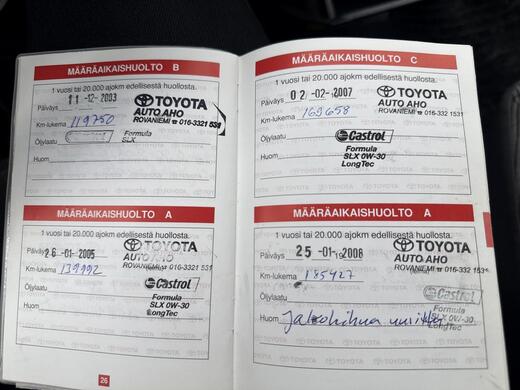 MÄÄRÄAIKAISHUOLTO B
1 vuosi tai 20.000 ajokm edellisestä huollosta.
Päiväys 11-12-2003
TOYOTA
AUTO AHO
ROVANIEMI ☎ 016-3321 531
Km-lukema 119750
Öljylaatu Castrol Formula
SLX
Huom
MÄÄRÄAIKAISHUOLTO A
1 vuosi tai 20.000 ajokm edellisestä huollosta.
Päiväys 26-01-2005
TOYOTA
AUTO AHO
ROVANIEMI ☎ 016-3321 531
Km-lukema 139992
Öljylaatu Castrol
Formula
SLX 0W-30
LongTec
Huom
26
MÄÄRÄAIKAISHUOLTO C
1 vuosi tai 20.000 ajokm edellisestä huollosta.
Päiväys 02-02-2007
TOYOTA
AUTO AHO
ROVANIEMI ☎ 016-3321 531
Km-lukema 169658
Öljylaatu Castrol
Formula
SLX 0W-30
LongTec
Huom
MÄÄRÄAIKAISHUOLTO A
1 vuosi tai 20.000 ajokm edellisestä huollosta.
Päiväys 25-01-2008
TOYOTA
AUTO AHO
ROVANIEMI ☎ 016-3321 531
Km-lukema 185427
Öljylaatu Castrol
Formula
SLX 0W-30
LongTec
Huom